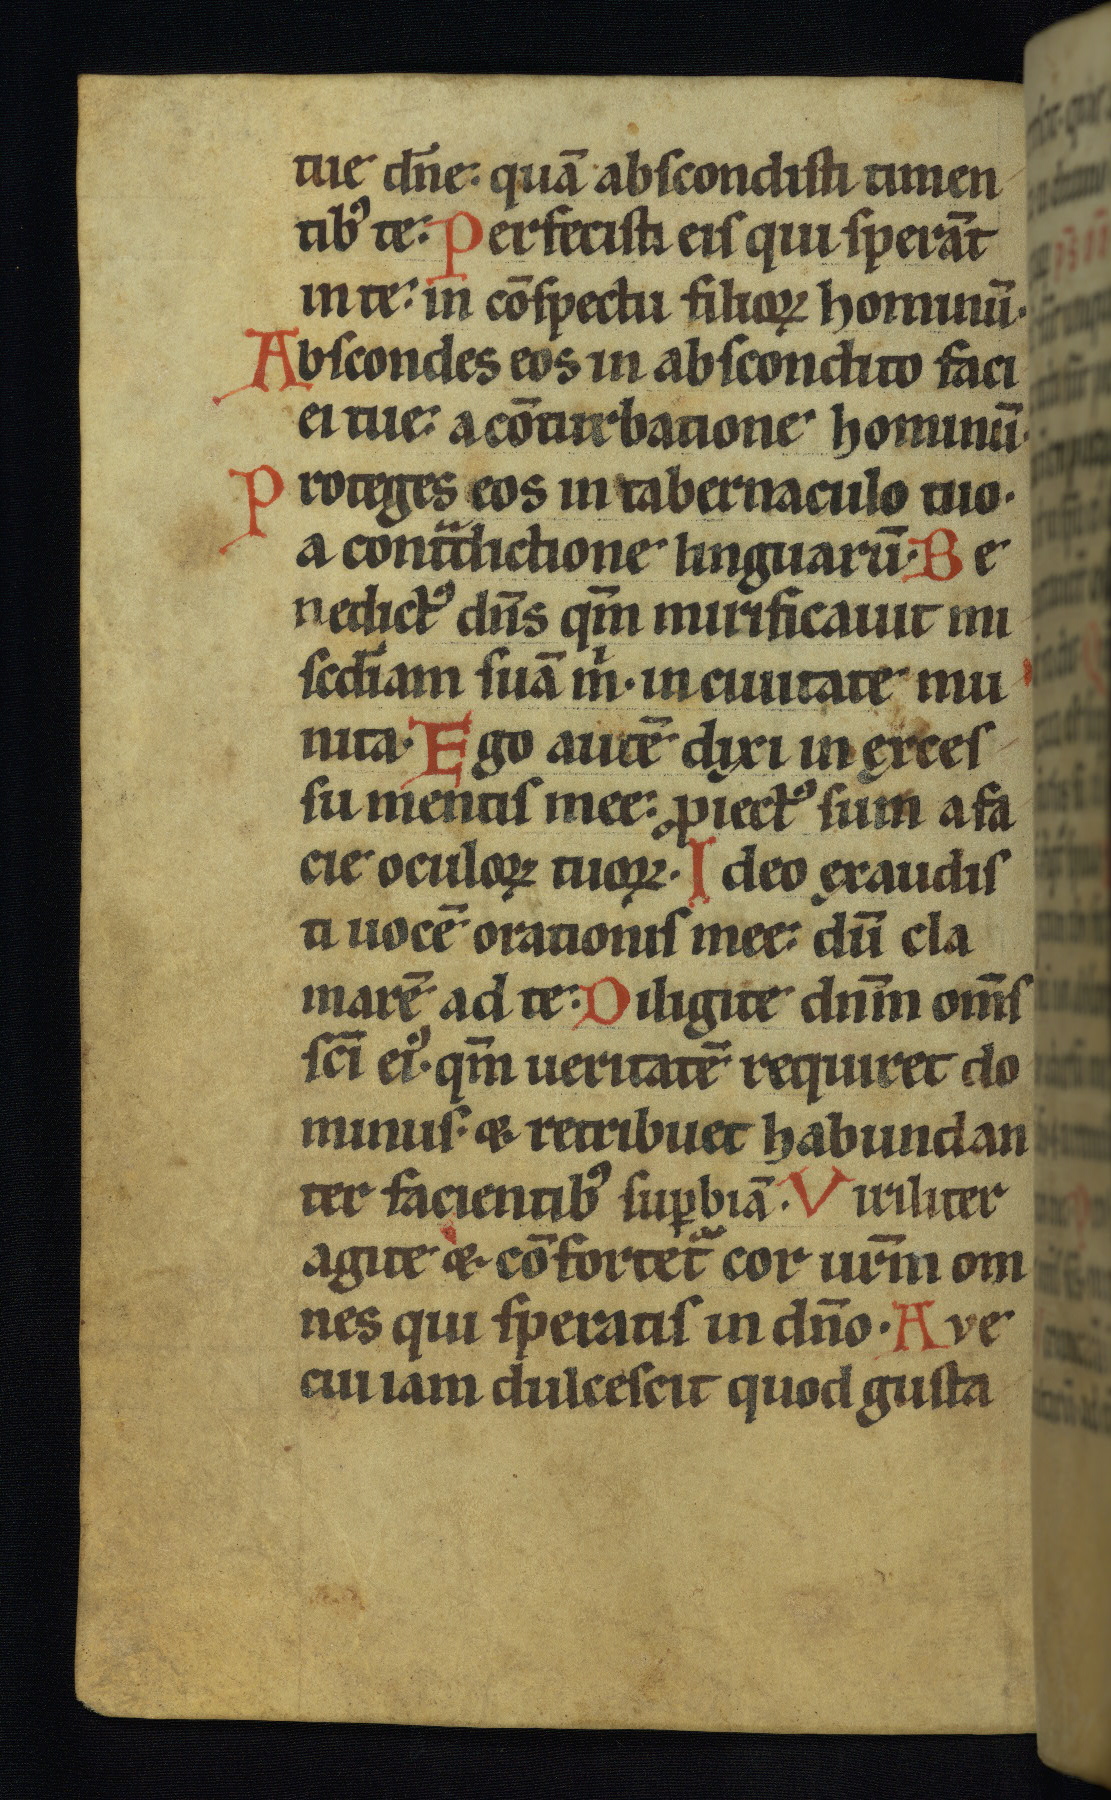 tue dn̄e: quā abſcondiſti timen
tibꝰ te: Perfeciſti eiſ qui ſperāt
in te: in cōſpectu filioꝝ hominū·
Abſcondes eos in abſcondito faci
ei tue: a cōturbatione hominū·
Proteges eos in tabernaculo tuo·
a contᷓdictione linguarū· Be
nedictꝰ dn̄s qm̄ mirificauit mi
ſcd̄iam ſuā m̍· in ciuitate mu
nita· Ego autē dixi in exceſ
ſu mentiſ mee: ꝓiectꝰ ſum a fa
cie oculoꝝ tuoꝝ· Ideo exaudiſ
ti uocē orationiſ mee: dū cla
marē ad te: Diligite dnm̄ om̄ſ
ſci̅ eiꝰ· qm̄ ueritatē requiret do
minuſ· & retribuet habundan
ter facientibꝰ ſuꝑbiā· Viriliter
agite & cōfortet᷑ cor ur̄m om
nes qui ſperatiſ in dn̄o· Ave
cui iam dulceſcit quod guſta